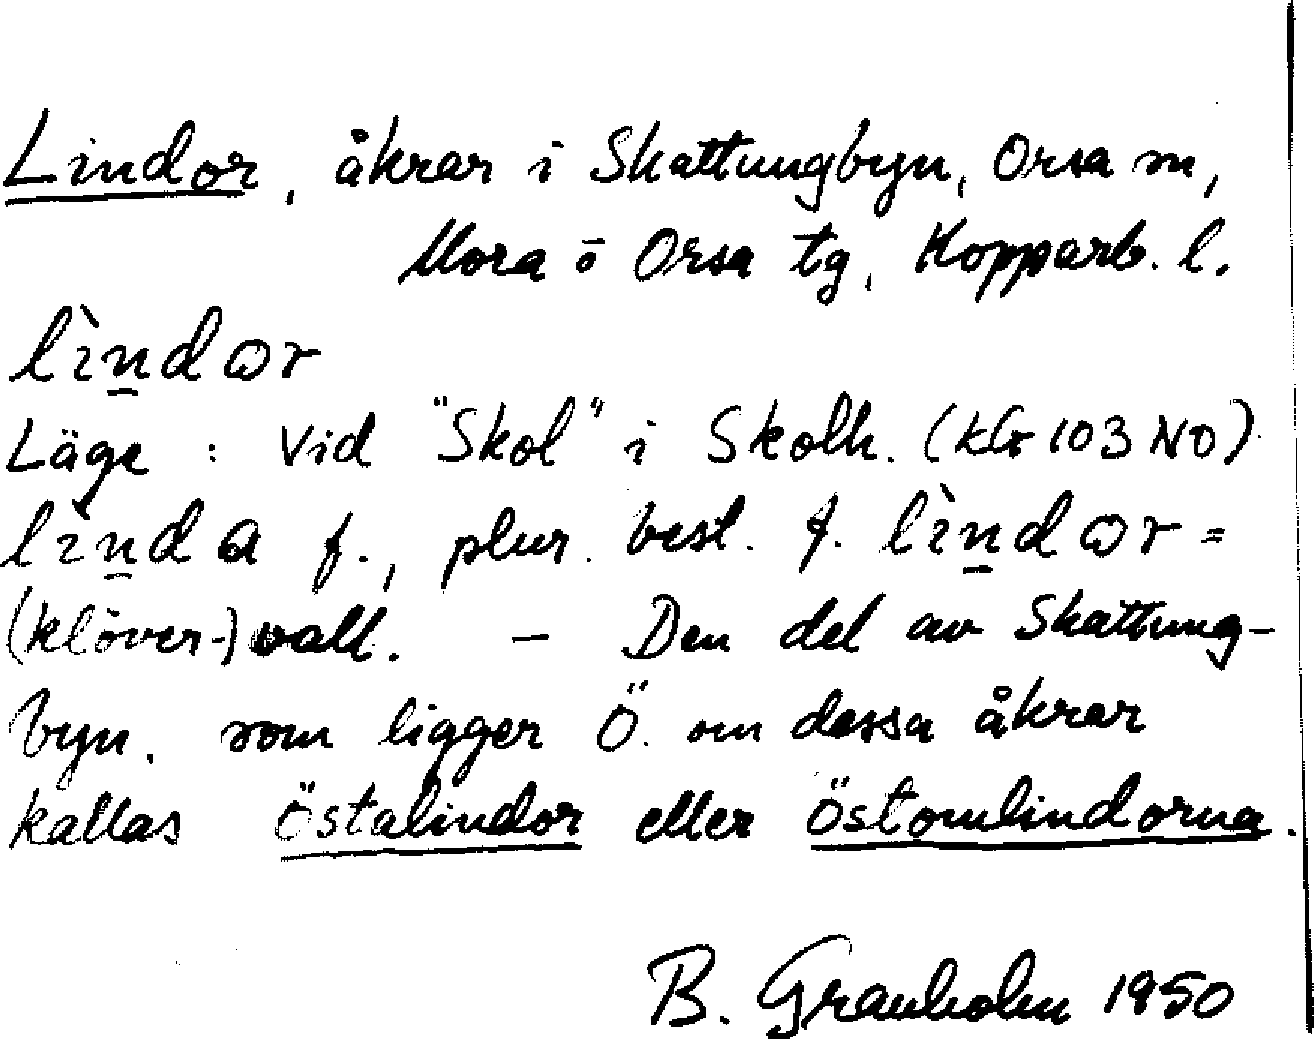 Lindor, åkrar i Skattungbyn, Orsa sn,
Mora o Orsa tg, Kopparb. l.
lìn̲dɷr
Läge : Vid "Skol" i Skolh. (kbl 103 NO)
lìn̲da f., plur. best. f. lìn̲dɷr =
(klöver-)vall. – Den del av Skattung-
byn, som ligger Ö. om dessa åkrar
kallas Östalindor eller Östomlindorna.
B. Granholm 1950